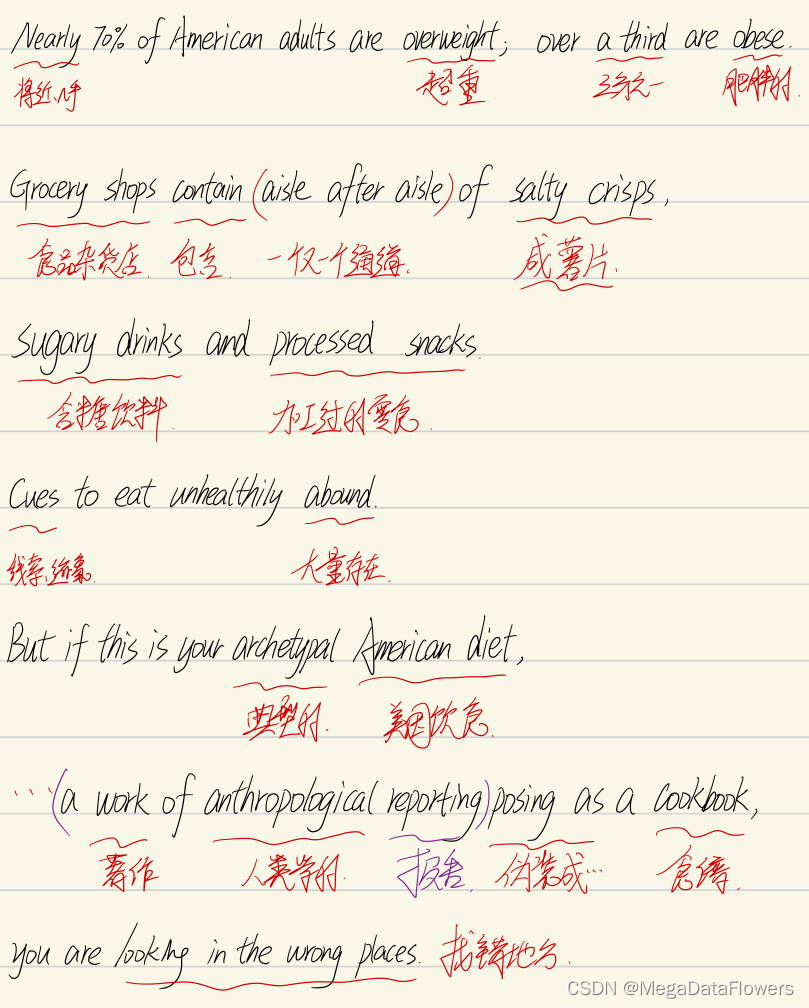 Nearly 70% of American adults are overweight; over a third are obese.
将近,几乎 超重 三分之一 肥胖的.
Grocery shops contain (aisle after aisle) of salty crisps,
食品杂货店. 包含. 一个又一个通道. 咸薯片.
sugary drinks and processed snacks.
含糖饮料. 加工过的零食.
Cues to eat unhealthily abound.
线索, 大量存在.
But if this is your archetypal American diet,
典型的. 美国饮食.
... (a work of anthropological reporting) posing as a cookbook,
著作 人类学的. 报告. 伪装成... 食谱.
you are looking in the wrong places. 找错地方.
CSDN @MegaDataFlowers